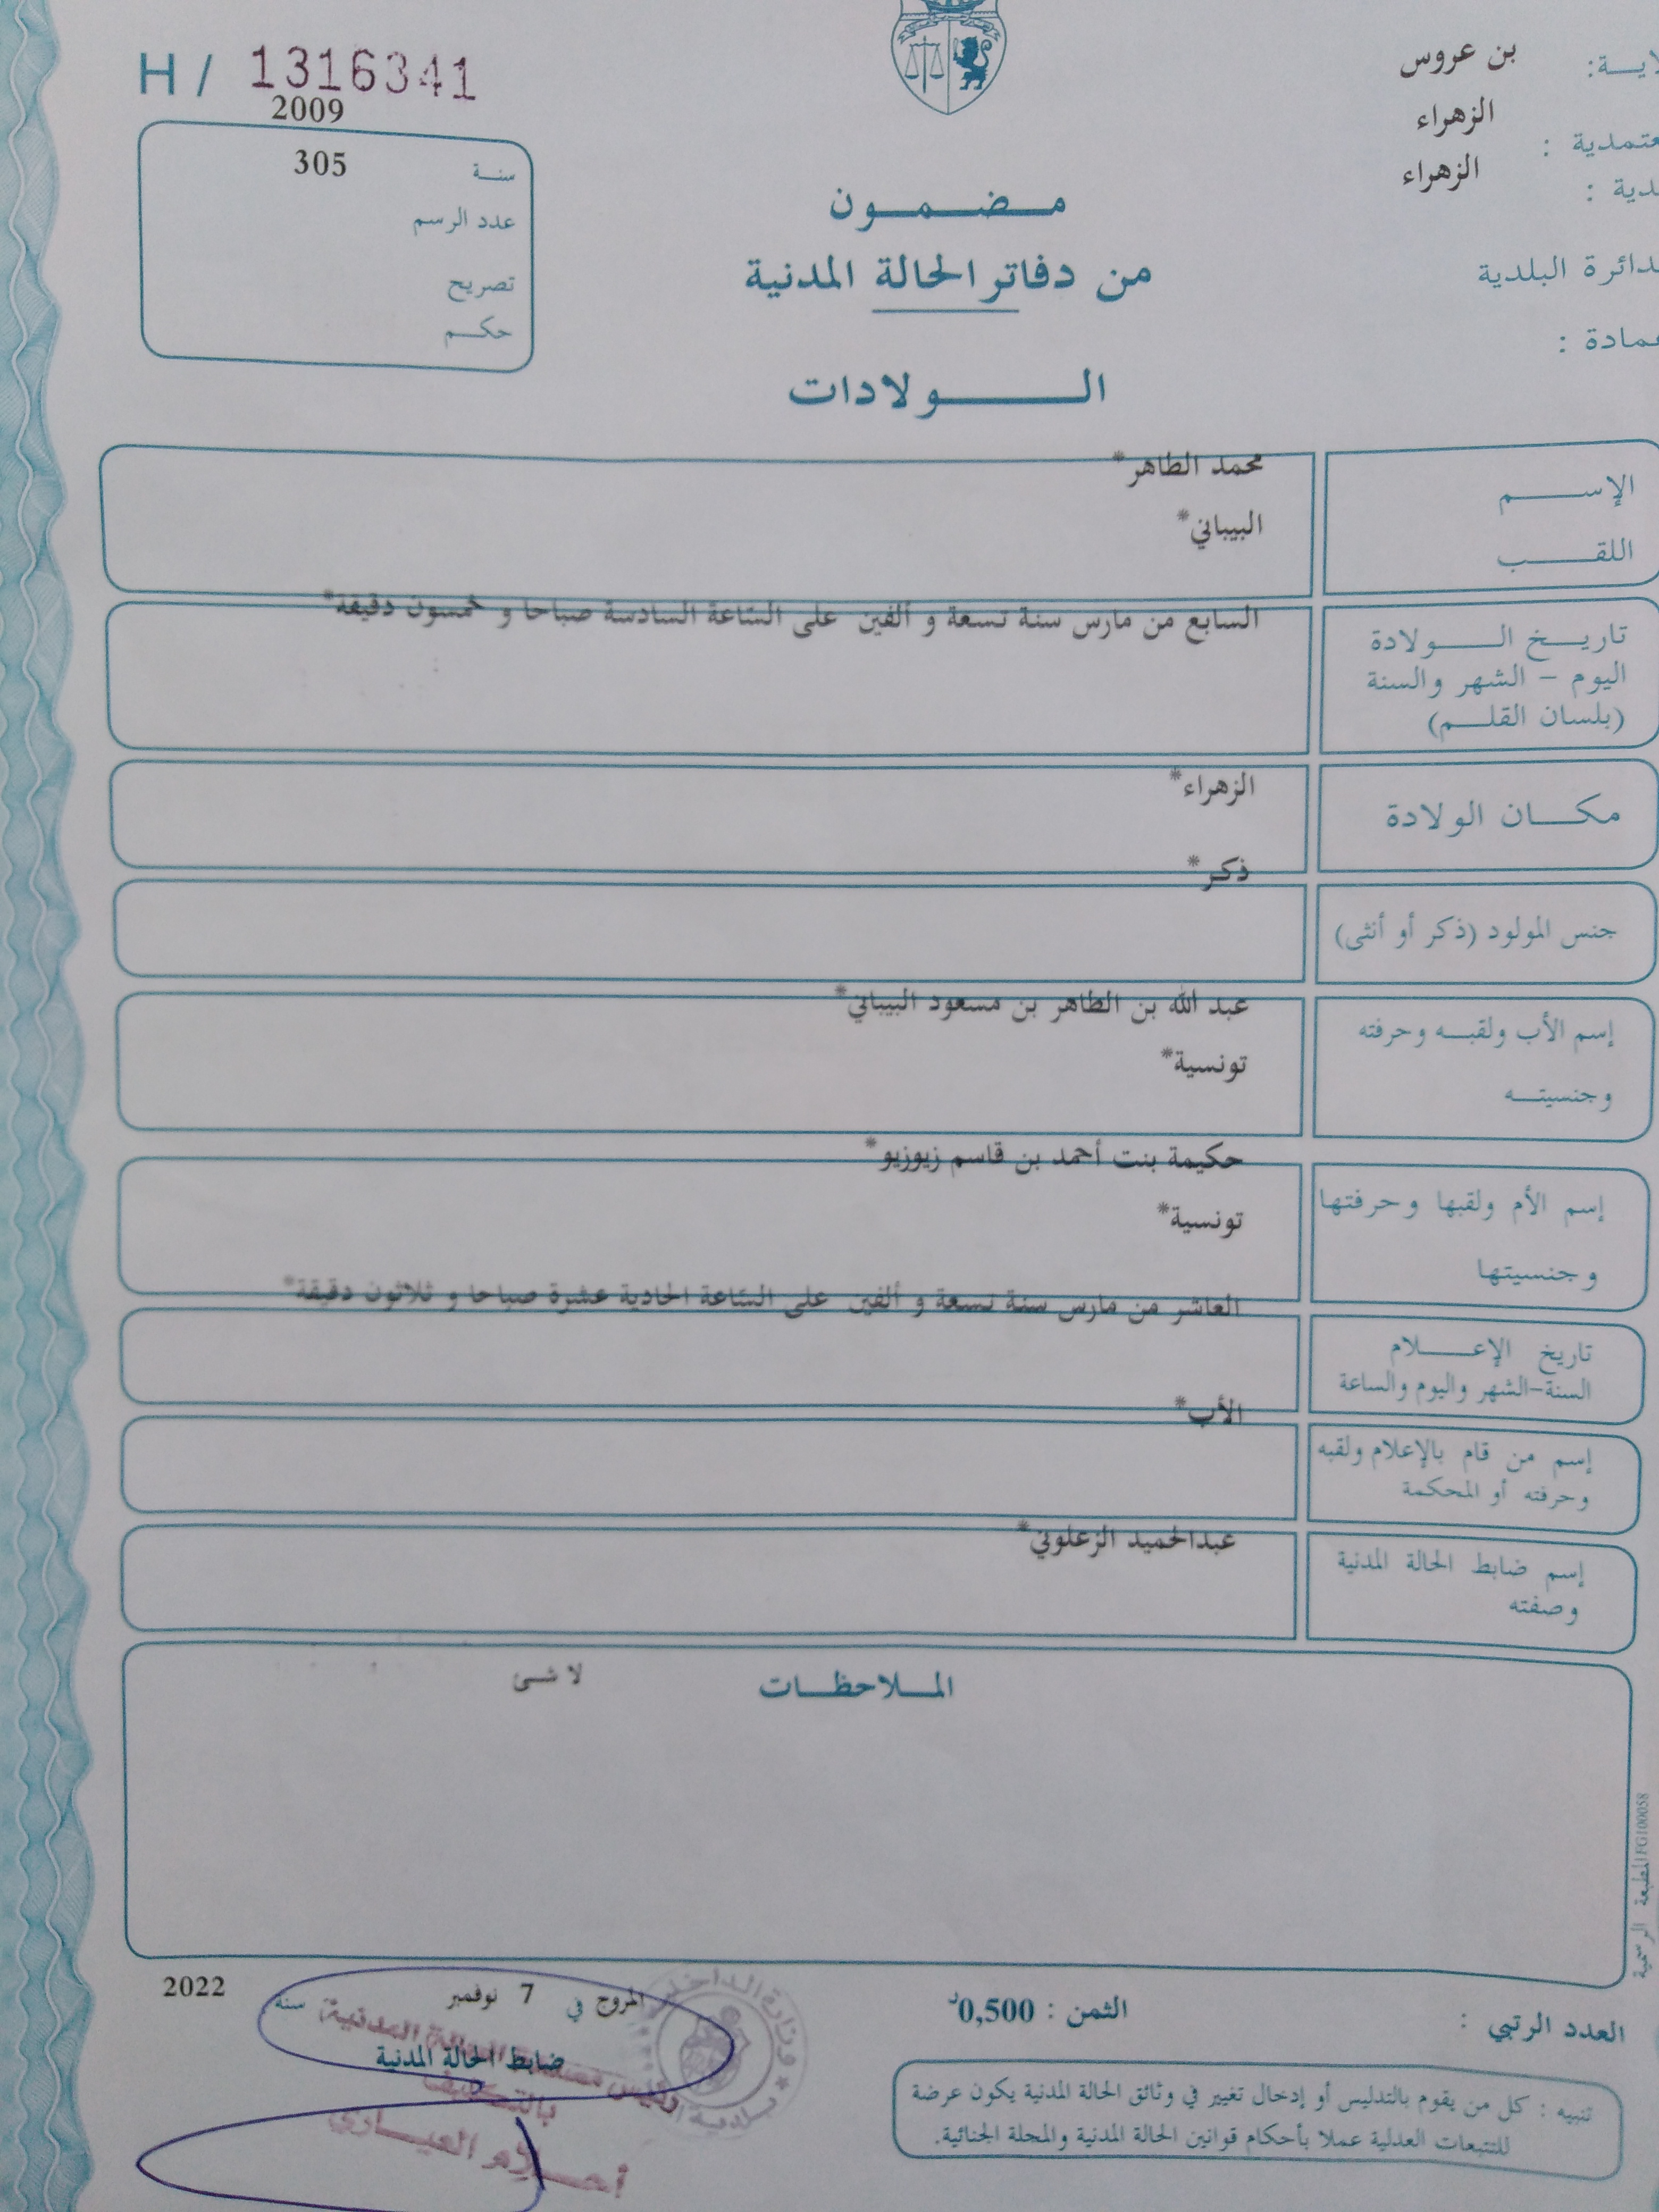 H / 1316341
2009
سنة 305
عدد الرسم
تصريح
حكم
بن عروس
الزهراء
الزهراء
الدائرة البلدية
مضمون
من دفاتر الحالة المدنية
الولادات
الإسم محمد الطاهر*
اللقب البيباني*
تاريخ الولادة السابع من مارس سنة تسعة و ألفين على السّاعة السادسة صباحا و خمسون دقيقة*
اليوم – الشهر والسنة
(بلسان القلم)
مكان الولادة الزهراء*
ذكر*
جنس المولود (ذكر أو أنثى)
إسم الأب ولقبه وحرفته عبد الله بن الطاهر بن مسعود البيباني*
وجنسيته تونسية*
إسم الأم ولقبها وحرفتها حكيمة بنت أحمد بن قاسم زيوزيو*
وجنسيتها تونسية*
العاشر من مارس سنة تسعة و ألفين على السّاعة الحادية عشرة صباحا و ثلاثون دقيقة*
تاريخ الإعلام
السنة-الشهر واليوم والساعة
الأب*
إسم من قام بالإعلام ولقبه
وحرفته أو المحكمة
عبدالحميد الزعلوني*
إسم ضابط الحالة المدنية
وصفته
الملاحظات لا شئ
المطبعة الرسمية FG100058
العدد الرتبي :
الثمن : 0,500د
المروج في 7 نوفمبر سنة 2022
ضابط الحالة المدنية
بالتكليف
أحلام العياري
تنبيه : كل من يقوم بالتدليس أو إدخال تغيير في وثائق الحالة المدنية يكون عرضة
للتتبعات العدلية عملا بأحكام قوانين الحالة المدنية والمجلة الجنائية.